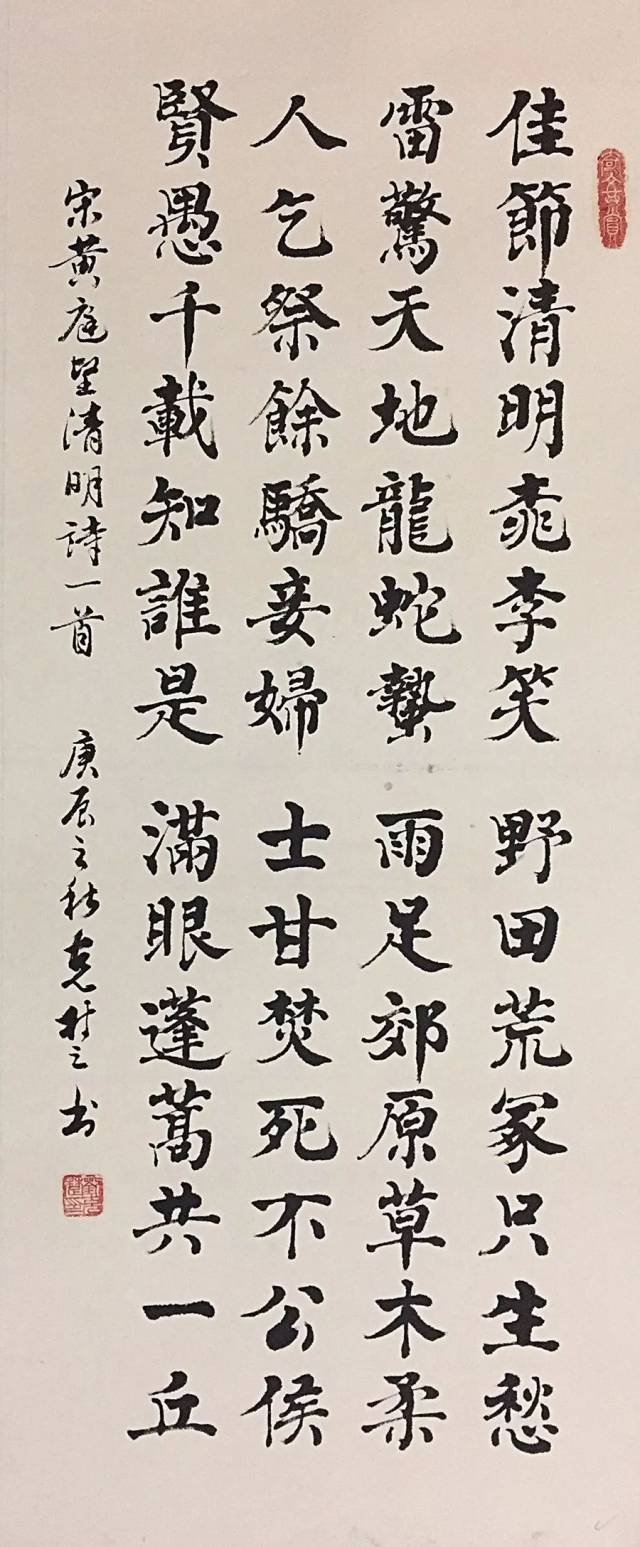 佳節清明桃李笑 野田荒冢只生愁
雷驚天地龍蛇蟄 雨足郊原草木柔
人乞祭餘驕妾婦 士甘焚死不公侯
賢愚千載知誰是 滿眼蓬蒿共一丘
宋黃庭堅清明詩一首 庚辰之秋 克 之书